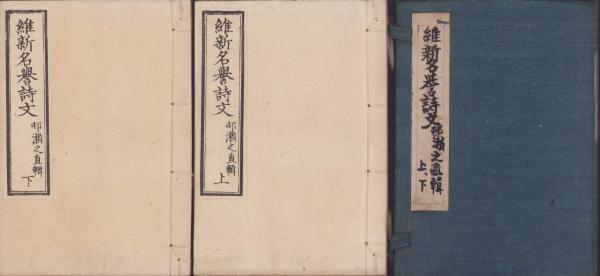 維新名譽詩文
邨瀬之直輯
上、下
維新名譽詩文
邨瀬之直輯
上
維新名譽詩文
邨瀬之直輯
下